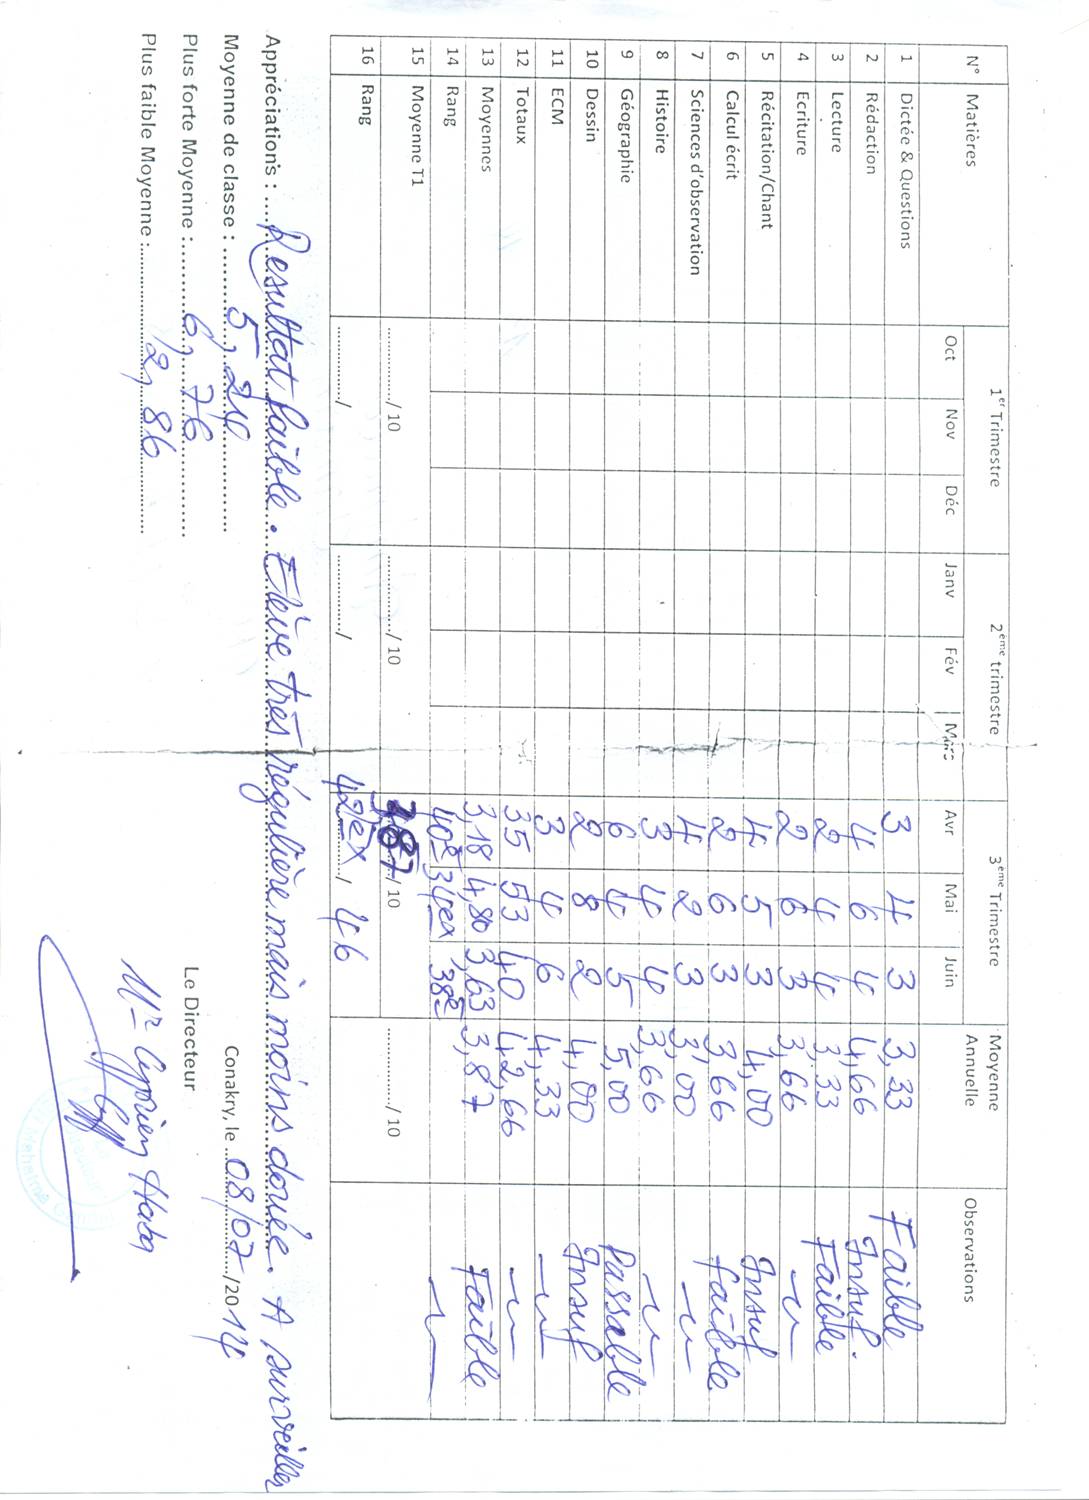 N° Matières 1er Trimestre 2ème trimestre 3ème Trimestre Moyenne Annuelle Observations
Oct Nov Déc Janv Fév Mars Avr Mai Juin
1 Dictée & Questions 3 4 3 3,33 Faible
2 Rédaction 4 6 4 4,66 Insuf.
3 Lecture 2 4 4 3,33 Faible
4 Ecriture 2 6 3 3,66
5 Récitation/Chant 4 5 3 4,00 Insuf
6 Calcul écrit 2 6 3 3,66 faible
7 Sciences d'observation 4 2 3 3,00
8 Histoire 3 4 4 3,66
9 Géographie 6 4 5 5,00 Passable
10 Dessin 2 8 2 4,00 Insuf
11 ECM 3 4 6 4,33
12 Totaux 35 53 40 42,66
13 Moyennes 3,18 4,80 3,63 3,87 Faible
14 Rang 40e 34ex 38e
15 Moyenne T1 ............/ 10 ............/ 10 3,87/ 10 ............/ 10
16 Rang ............/ ............/ 42ex / 46
Appréciations : Resultat faible. Elève très régulière mais moins douée. A surveiller
Moyenne de classe : 5,24 Conakry, le 08/07/2014
Plus forte Moyenne : 6,76 Le Directeur
Plus faible Moyenne : 2,86 Mr Cyprien Haba